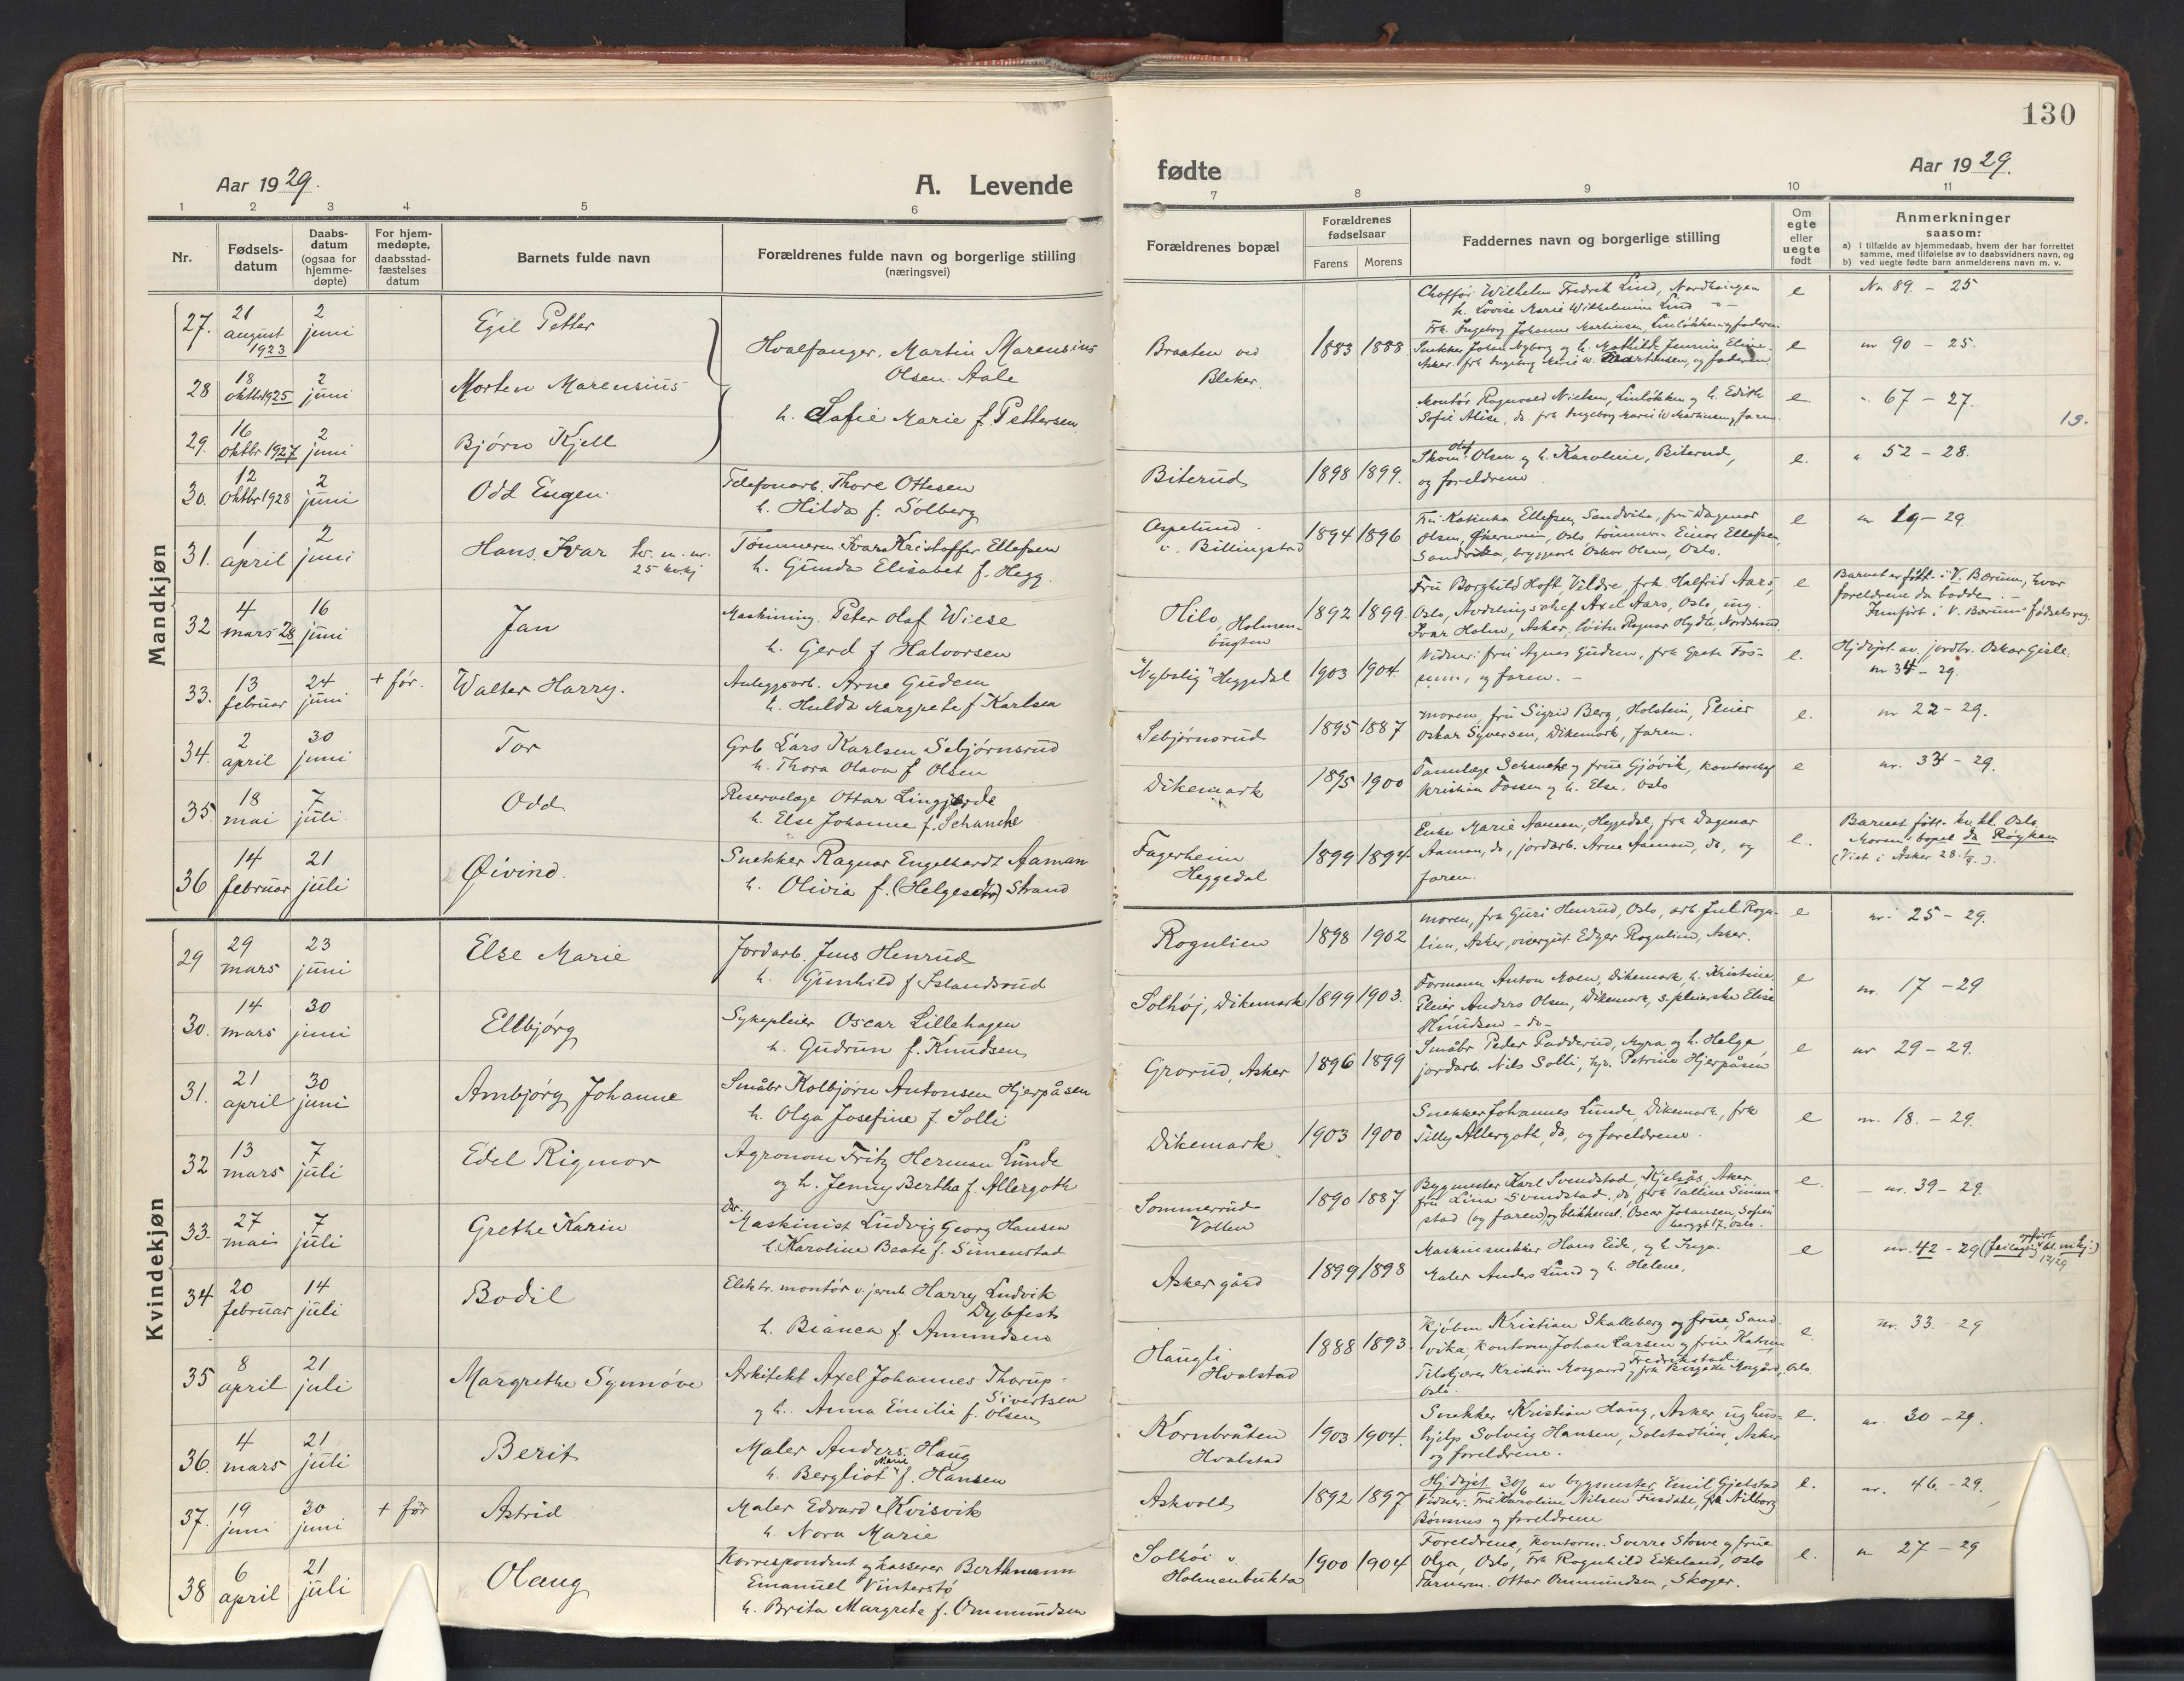 130
Aar 1929.
A. Levende
fødte
Aar 1929.
1 2 3 4 5 6 7 8 9 10 11
Nr.
Fødsels-
datum
Daabs-
datum
(ogsaa for
hjemme-
døpte)
For hjem-
medøpte,
daabsstad-
fæstelses
datum
Barnets fulde navn
Forældrenes fulde navn og borgerlige stilling
(næringsvei)
Forældrenes bopæl
Forældrenes
fødselsaar
Farens Morens
Faddernes navn og borgerlige stilling
Om
egte
eller
uegte
født
Anmerkninger
saasom:
a) i tilfælde av hjemmedaab, hvem der har forrettet
samme, med tilføielse av to daabsvidners navn, og
b) ved uegte fødte barn anmelderens navn m. v.
Mandkjøn
27. 21 august 1923 2 juni Egil Petter
Hvalfanger. Martin Marensius
Olsen Aale
h. Sofie Marie f. Pettersen
Braaten ved
Bleker.
1883 1888
Chaffør Wilhelm Fredrik Lind, Nordhaugen
h. Lovise Marie Wilhelmine Lind
Frk. Ingeborg Johanne Martinsen, Linløkken og faderen
e No 89. - 25
28 18 oktbr 1925 2 juni Morten Marensius
Snekker Johan Nyborg og h. Mathilde Jennie Eline
Asker. frk Ingeborg Marie W. Martinsen, og faderen
e nr 90 - 25.
29. 16 oktbr 1927 2 juni Bjørn Kjell
Montør Ragnvald Nielsen, Linløkken og h. Edith
Sofie Alise, do. frk Ingeborg Marie W Martinsen, faren.
e " 67 - 27.
13.
30. 12 oktbr 1928 2 juni Odd Eugen.
Telefonarb. Thore Ottesen
h. Hilda f. Solberg
Biterud 1898 1899.
Skom. Olaf Olsen og h. Karoline, Biterud,
og foreldrene
e. " 52 - 28.
31. 1 april 2 juni Hans Ivar
25 kvkj
Tømmerm. Ivar Kristoffer Ellefsen
h. Gunda Elisabet f. Hegg.
Aspelund
v. Billingstad
1894 1896
Fru Katinka Ellefsen, Sandvika, fru Dagmar
Olsen, Økernveien, Oslo tømmerm Einar Ellefsen,
Sandvika, bryggearb Oskar Olsen, Oslo.
e nr 19 - 29.
32 4 mars 28 16 juni Jan
Maskining. Peter Olaf Wiese
h. Gerd f Halvorsen
Hilo, Holmen-
bugten
1892 1899.
Fru Borghild Hoft, Vildre, frk. Halfrid Aars,
Oslo, Avdelingschef Axel Aars, Oslo, ing.
Ivar Holm, Asker, Ragnar Hydle, Nordstrand
e Barnet er født i V. Bærum, hvor
foreldrene da bodde. -
Innført i V. Bærums fødselsreg.
33. 13 februar 24 juni + før. Walter Harry.
Anleggsarb. Arne Gudem
h. Hulda Margrete f Karlsen
"Nybolig" Heggedal 1903 1904.
Vidner: fru Agnes Gudem, frk Grete Fos-
sum, og faren. -
e. Hjdøpt. av jordbr. Oskar Gisle.
nr 34 - 29.
34. 2 april 30 juni Tor
Grb Lars Karlsen Sebjørnsrud
h. Thora Olava f Olsen
Sebjørnsrud 1895 1887
moren, fru Sigrid Berg, Holstein, Pleier
Oskar Syversen, Dikemark, faren.
e. nr 22 - 29.
35. 18 mai 7 juli Odd
Reservelæge Ottar Lingjærde
h. Else Johanne f. Schanche
Dikemark 1895 1900
Tannlæge Schanche og frue Gjøvik, kontorchef
Kristian Fossen og h. Else. Oslo
e nr. 33 - 29.
36 14 februar 21 juli Øivind.
Snekker Ragnar Engelhardt Aaman
h. Olivia f. (Helgeseth) Strand
Fagerheim
Heggedal
1899 1894
Enke Marie Aaman, Heggedal, frk Dagmar
Aaman, do, jordarb. Arne Aaman, do, og
faren.
e. Barnet født kv.kl. Oslo
Morens bopel da Røyken
(Viet i Asker 28.1/9.).
Kvindekjøn
29 29 mars 23 juni Else Marie
Jordarb. Jens Henrud
h. Gunhild f Islandsrud
Rognlien 1898 1902
moren, frk Guri Henrud, Oslo, arb Jul. Rogn-
lien, Asker, visergut Edger Rognlien, Asker.
e nr. 25 - 29.
30. 14 mars 30 juni Ellbjørg
Sykepleier Oscar Lillehagen
h. Gudrun f. Knudsen
Solhøj, Dikemark 1899 1903.
Formann Anton Moen, Dikemark, h. Kristine,
Pleier Anders Olsen, Dikemark, s.pleierske Elise
Knudsen - do -
e nr. 17 - 29
31. 21 april 30 juni Arnbjørg Johanne
Småbr Kolbjørn Antonsen Hjerpåsen
h. Olga Josefine f. Solli
Grorud, Asker 1896 1899
Småbr Peder Padderud, Myra og h. Helga,
jordarb. Nils Solli, hjv. Petrine Hjerpåsen
e nr 29 - 29.
32 13 mars 7 juli Edel Rigmor
Agronom Fritz Herman Lunde
og h. Jenny Bertha f. Allergoth
Dikemark 1903 1900
Snekker Johannes Lunde, Dikemark, frk
Tilly Allergoth, do, og foreldrene.
e nr. 18. - 29.
33. 27 mai 7 juli Grethe Karin
Maskinist Ludvig Georg Hansen
h. Karoline Beate f. Simenstad
Sommerrud
Vollen
1890 1887
Bygmester Karl Svendstad, Hjelsås, Asker
fru Lina Svendstad, do, frk Talline Simen-
stad (og faren) og blikkensl. Oscar Johansen, Sofien-
berggt 17. Oslo.
e. nr. 39 - 29.
34 20 februar 14 juli Bodil
Elektr. montør v. jernb Harry Ludvik
Dybfest
h. Bianca f. Amundsen
Asker gård 1899 1898
Maskinsnekker Hans Eide, og h. Inga.
Maler Anders Lund og h. Helene.
e nr. 42 - 29 (feilagtig opført bl. m.kj.)
35 8 april 21 juli Margrethe Synnøve
Arkitekt Axel Johannes Thorup-
Sivertsen
og h. Anna Emilie f. Olsen
Haugli
Hvalstad
1888 1893
Kjøbm Kristian Skalleberg og frue, Sand-
vika, kontorm. Johan Larsen og frue Katrine
Fredrikstad.
Tilskjærer Kristian Mosgaard og frk Birgitte Mosgård, Oslo.
Oslo.
e. nr. 33. 29
36. 4 mars 21 juli Berit
Maler Anders Haug
h. Bergliot Marie f. Hansen
Kornbråten
Hvalstad
1903 1904.
Snekker Kristian Haug, Asker, ug hus-
hjelp Solveig Hansen, Solstadlien, Asker
og foreldrene.
e. nr 30 - 29.
37. 19 juni 30 juni + før Astrid
Maler Edvard Kvisvik
h. Nora Marie
Askvold 1892 1897
Hjdøpt. 30/6 av bygmester Emil Gjelstad
Vidner: Fru Karoline Nilsen Fusdal, frk Nilborg
Bønsnes og foreldrene
e. nr. 46 - 29.
38 6 april 21 juli Olaug
Korrespondent og kasserer Berthmann
Emanuel Vinterstø
h. Brita Margrete f. Ommundsen
Solhøi v.
Holmenbukta
1900 1904
Foreldrene, kontorm. Sverre Stowe og frue
Olga, Oslo, Frk Ragnhild Eikeland, Oslo
Farverm. Ottar Ommundsen, Skoger.
e. nr 27 - 29